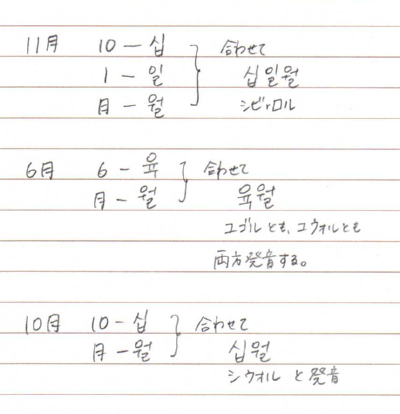 11月 10 - 십 合わせて
1 - 일 십일월
月 - 월 シビロル
6月 6 - 육 合わせて
月 - 월 육월
ユゴルとも、ユウォルとも
両方発音する。
10月 10 - 십 合わせて
月 - 월 십월
シウォル と発音